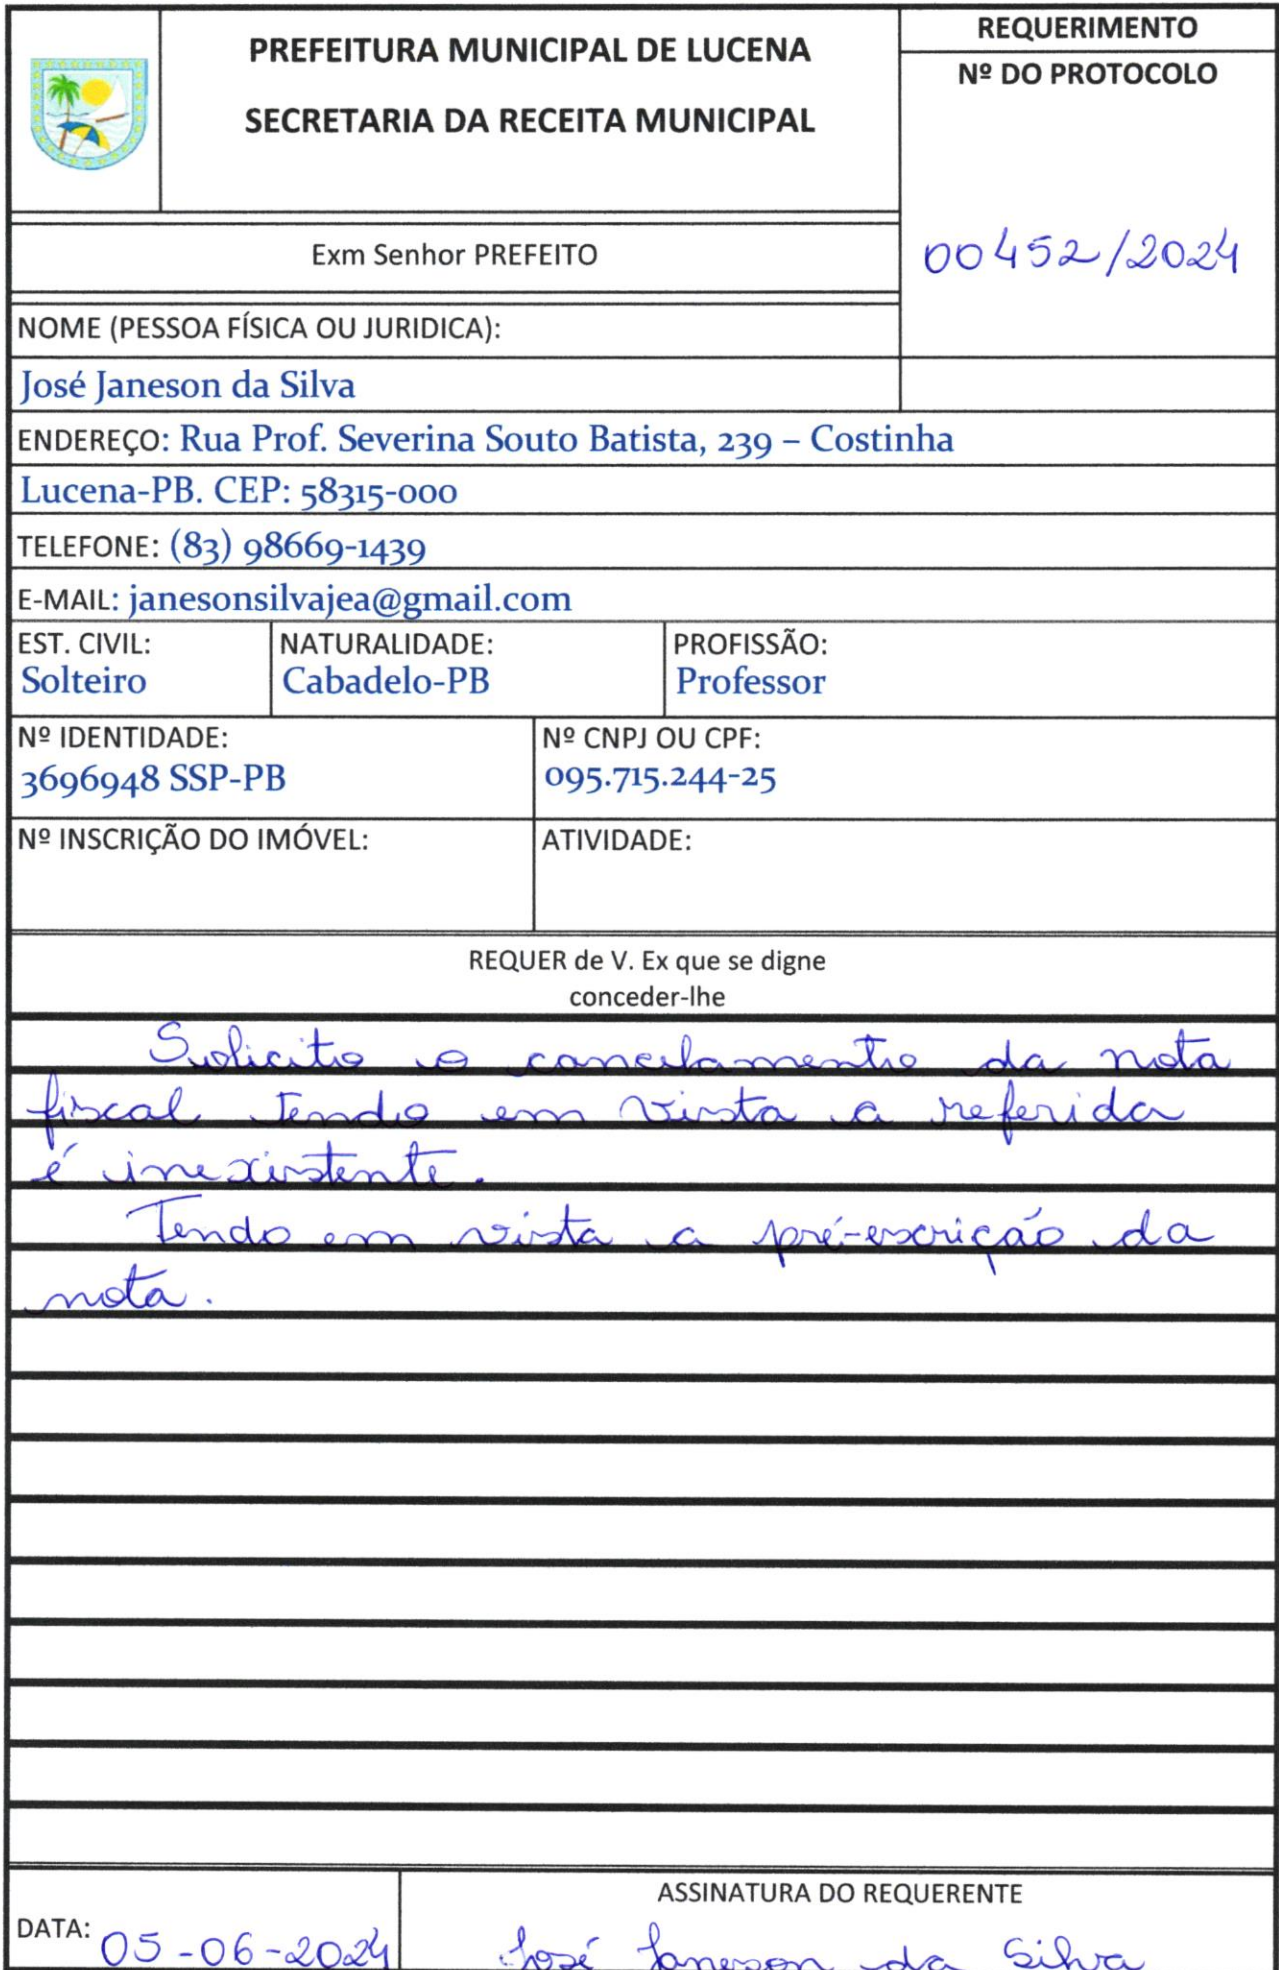 PREFEITURA MUNICIPAL DE LUCENA
SECRETARIA DA RECEITA MUNICIPAL
REQUERIMENTO
Nº DO PROTOCOLO
00452/2024
Exm Senhor PREFEITO
NOME (PESSOA FÍSICA OU JURIDICA):
José Janeson da Silva
ENDEREÇO: Rua Prof. Severina Souto Batista, 239 – Costinha
Lucena-PB. CEP: 58315-000
TELEFONE: (83) 98669-1439
E-MAIL: janesonsilvajea@gmail.com
EST. CIVIL:
Solteiro
NATURALIDADE:
Cabadelo-PB
PROFISSÃO:
Professor
Nº IDENTIDADE:
3696948 SSP-PB
Nº CNPJ OU CPF:
095.715.244-25
Nº INSCRIÇÃO DO IMÓVEL:
ATIVIDADE:
REQUER de V. Ex que se digne
conceder-lhe
Solicito o cancelamento da nota
fiscal tendo em vista a referida
é inexistente.
Tendo em vista a pré-escrição da
nota.
DATA: 05-06-2024
ASSINATURA DO REQUERENTE
José Janeson da Silva